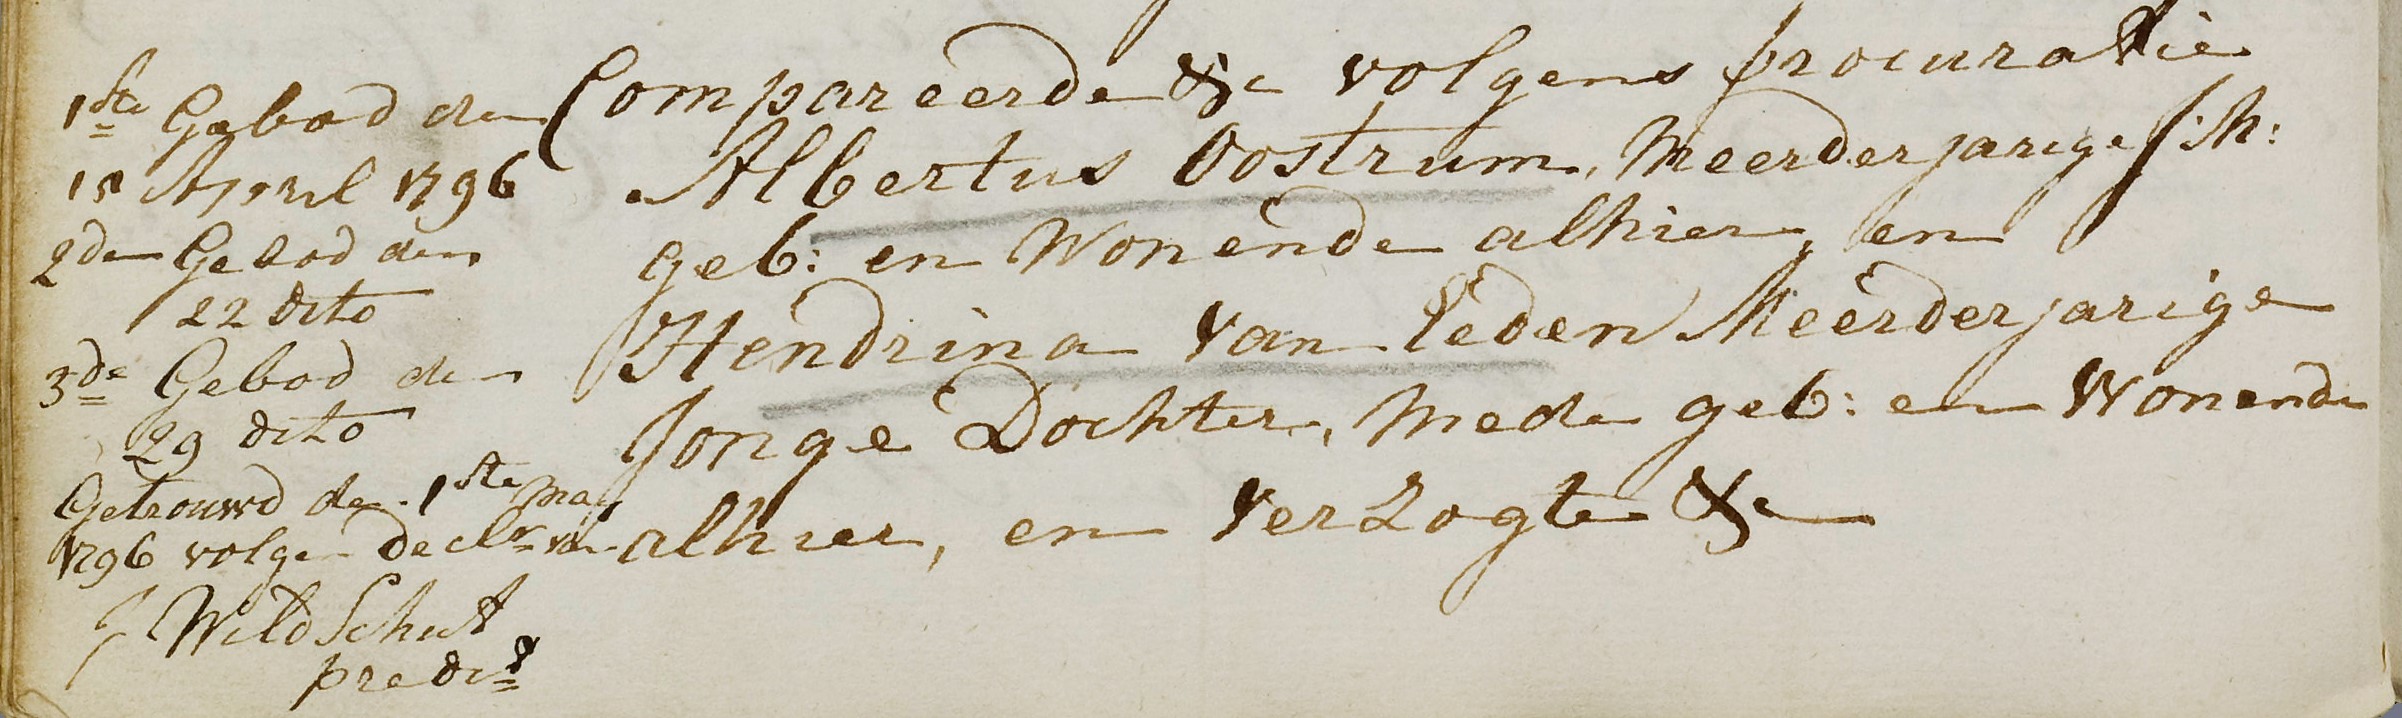 1ste Gebod den
15 April 1796
2den Gebod den
22 dito
3de Gebod den
29 dito
Getrouwd den 1ste may
1796 volgen declr: van
J Wildschut
predt
Compareerde &c volgens procuratie
Albertus Oostrum, Meerderjarige J: M:
geb: en Wonende alhier, en
Hendrina van Leden Meerderjarige
Jonge Dochter, mede geb: en Wonende
alhier, en Verzogte &c